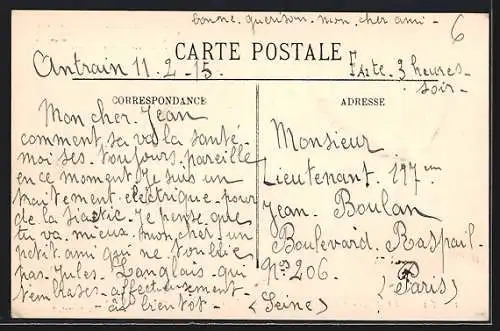 bonne. guerison. mon. cher ami -
6
CARTE POSTALE
Antrain 11. 2 - 15.
Faite. 3 heures-
soir -
CORRESPONDANCE
Mon cher. Jean
comment sa va la santé
moi ses. toujours. pareille
en ce moment Je suis un
traitement. electrique. pour
de la siatic. Je pense que
tu va. mieux. mon cher un
petit ami qui ne t'oublie
pas. Jules. Langlais. qui
t'embrases. affectueusement. -
- à bientot -
ADRESSE
Monsieur
Lieutenant. 197em
Jean. Boulan
Boulevard. Raspail-
Nos 206.
(Paris)
(Seine)